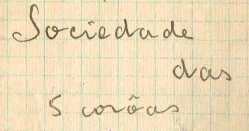 Sociedade
das
5 corôas